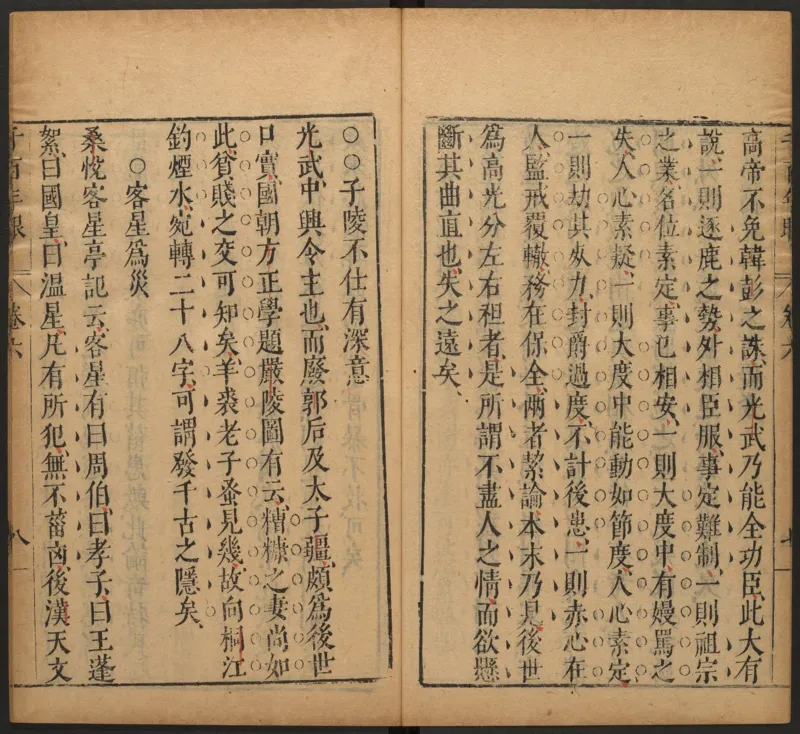 高帝不免韓彭之誅、而光武乃能全功臣、此大有
說、一則逐鹿之勢、外相臣服、事定難制、一則祖宗
之業、名位素定、事已相安、一則大度中、有嫚罵之
失、人心素疑、一則大度中能動如節度、人心素定、
一則劫其死力、封爵過度、不計後患、一則赤心在
人、監戒覆轍、務在保全、兩者絜論、本末乃見、後世
為高光分左右袒者、是所謂不盡人之情、而欲懸
斷其曲直也、失之遠矣、
○○子陵不仕有深意
光武、中興令主也、而廢郭后及太子疆、頗為後世
口實、國朝方正學題嚴陵圖有云、糟糠之妻尚如
此、貧賤之交可知矣、羊裘老子蚤見幾、故向桐江
釣煙水、宛轉二十八字、可謂發千古之隱矣、
○客星爲災
桑悅客星亭記云、客星有曰周伯、曰孝子、曰王蓬
絮、曰國皇、曰温星、凡有所犯、無不菑凶、後漢天文
千百年眼
卷六
八